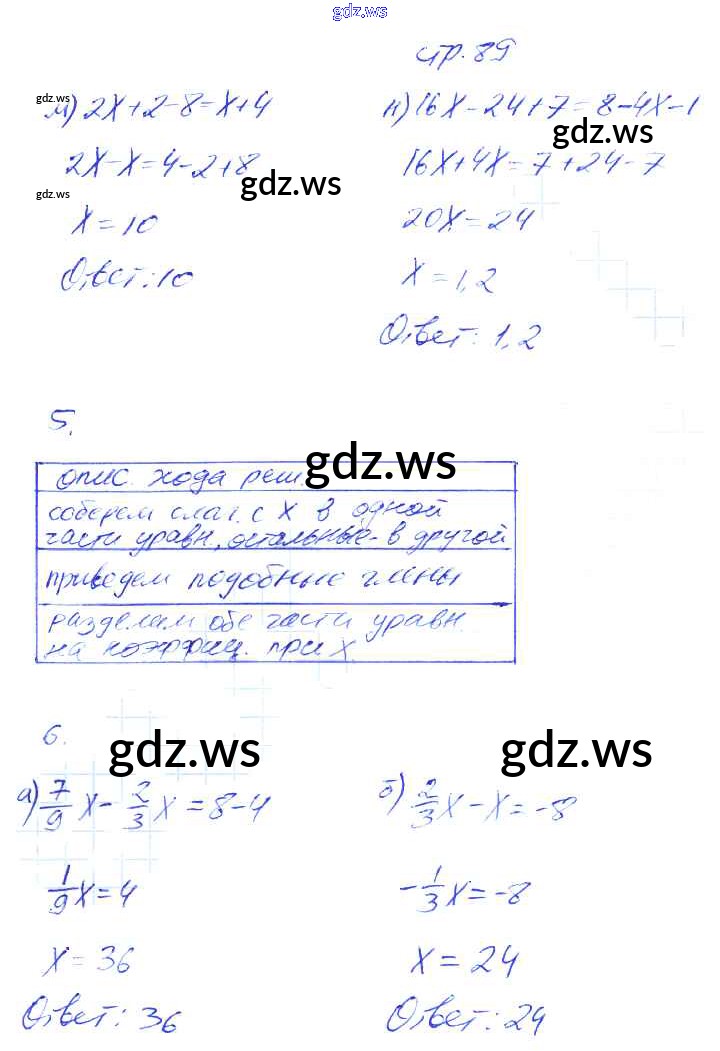 gdz.ws
стр. 89
gdz.ws
м) 2x+2-8=x+4
н) 16x-24+7=8-4x-1
gdz.ws
2x-x=4-2+8
gdz.ws
16x+4x=7+24-7
gdz.ws
x=10
20x=24
Ответ: 10
x=1,2
Ответ: 1,2
5.
опис. хода реш.
gdz.ws
соберем слаг. с x в одной
части уравн., остальные - в другой
приведем подобные члены
разделим обе части уравн
на коэффиц. при x
6.
gdz.ws
gdz.ws
а) 7/9 x - 2/3 x = 8-4
б) 2/3 x - x = -8
1/9 x = 4
-1/3 x = -8
x = 36
x = 24
Ответ: 36
Ответ: 24